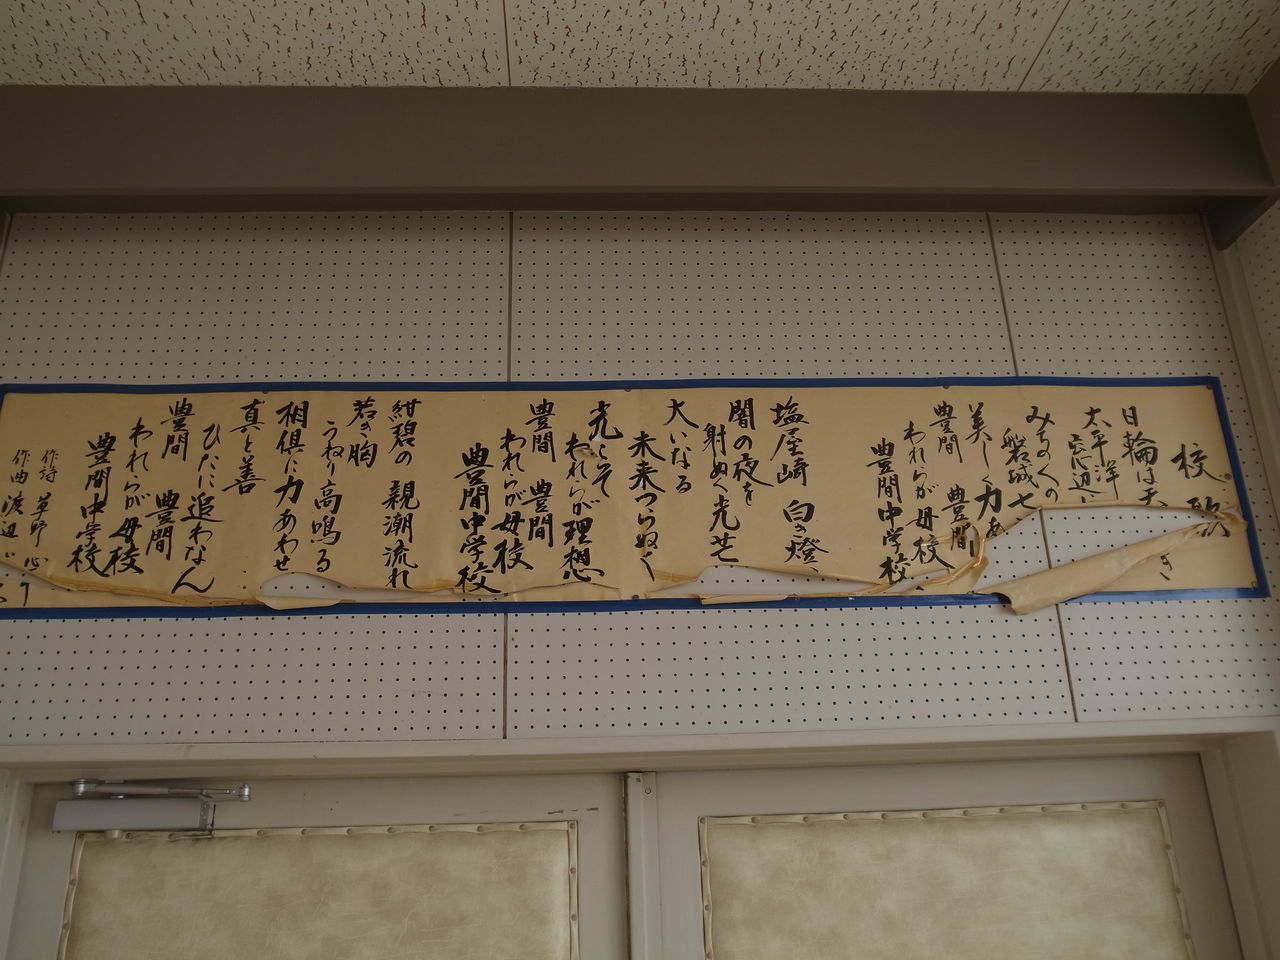 校歌
日輪は天
き
太平洋
みちのくの
磐城七
美しく力あ
豊間 豊間
われらが母校
豊間中学校
塩屋崎 白き燈
闇の夜を
射ぬく光芒
大いなる
未来つらぬく
光こそ
われらが理想
豊間 豊間
われらが母校
豊間中学校
紺碧の 親潮流れ
若き胸
うねり高鳴る
相倶に力あわせ
真と善
ひたに追わなん
豊間 豊間
われらが母校
豊間中学校
作詩 草野 心
作曲 渡辺